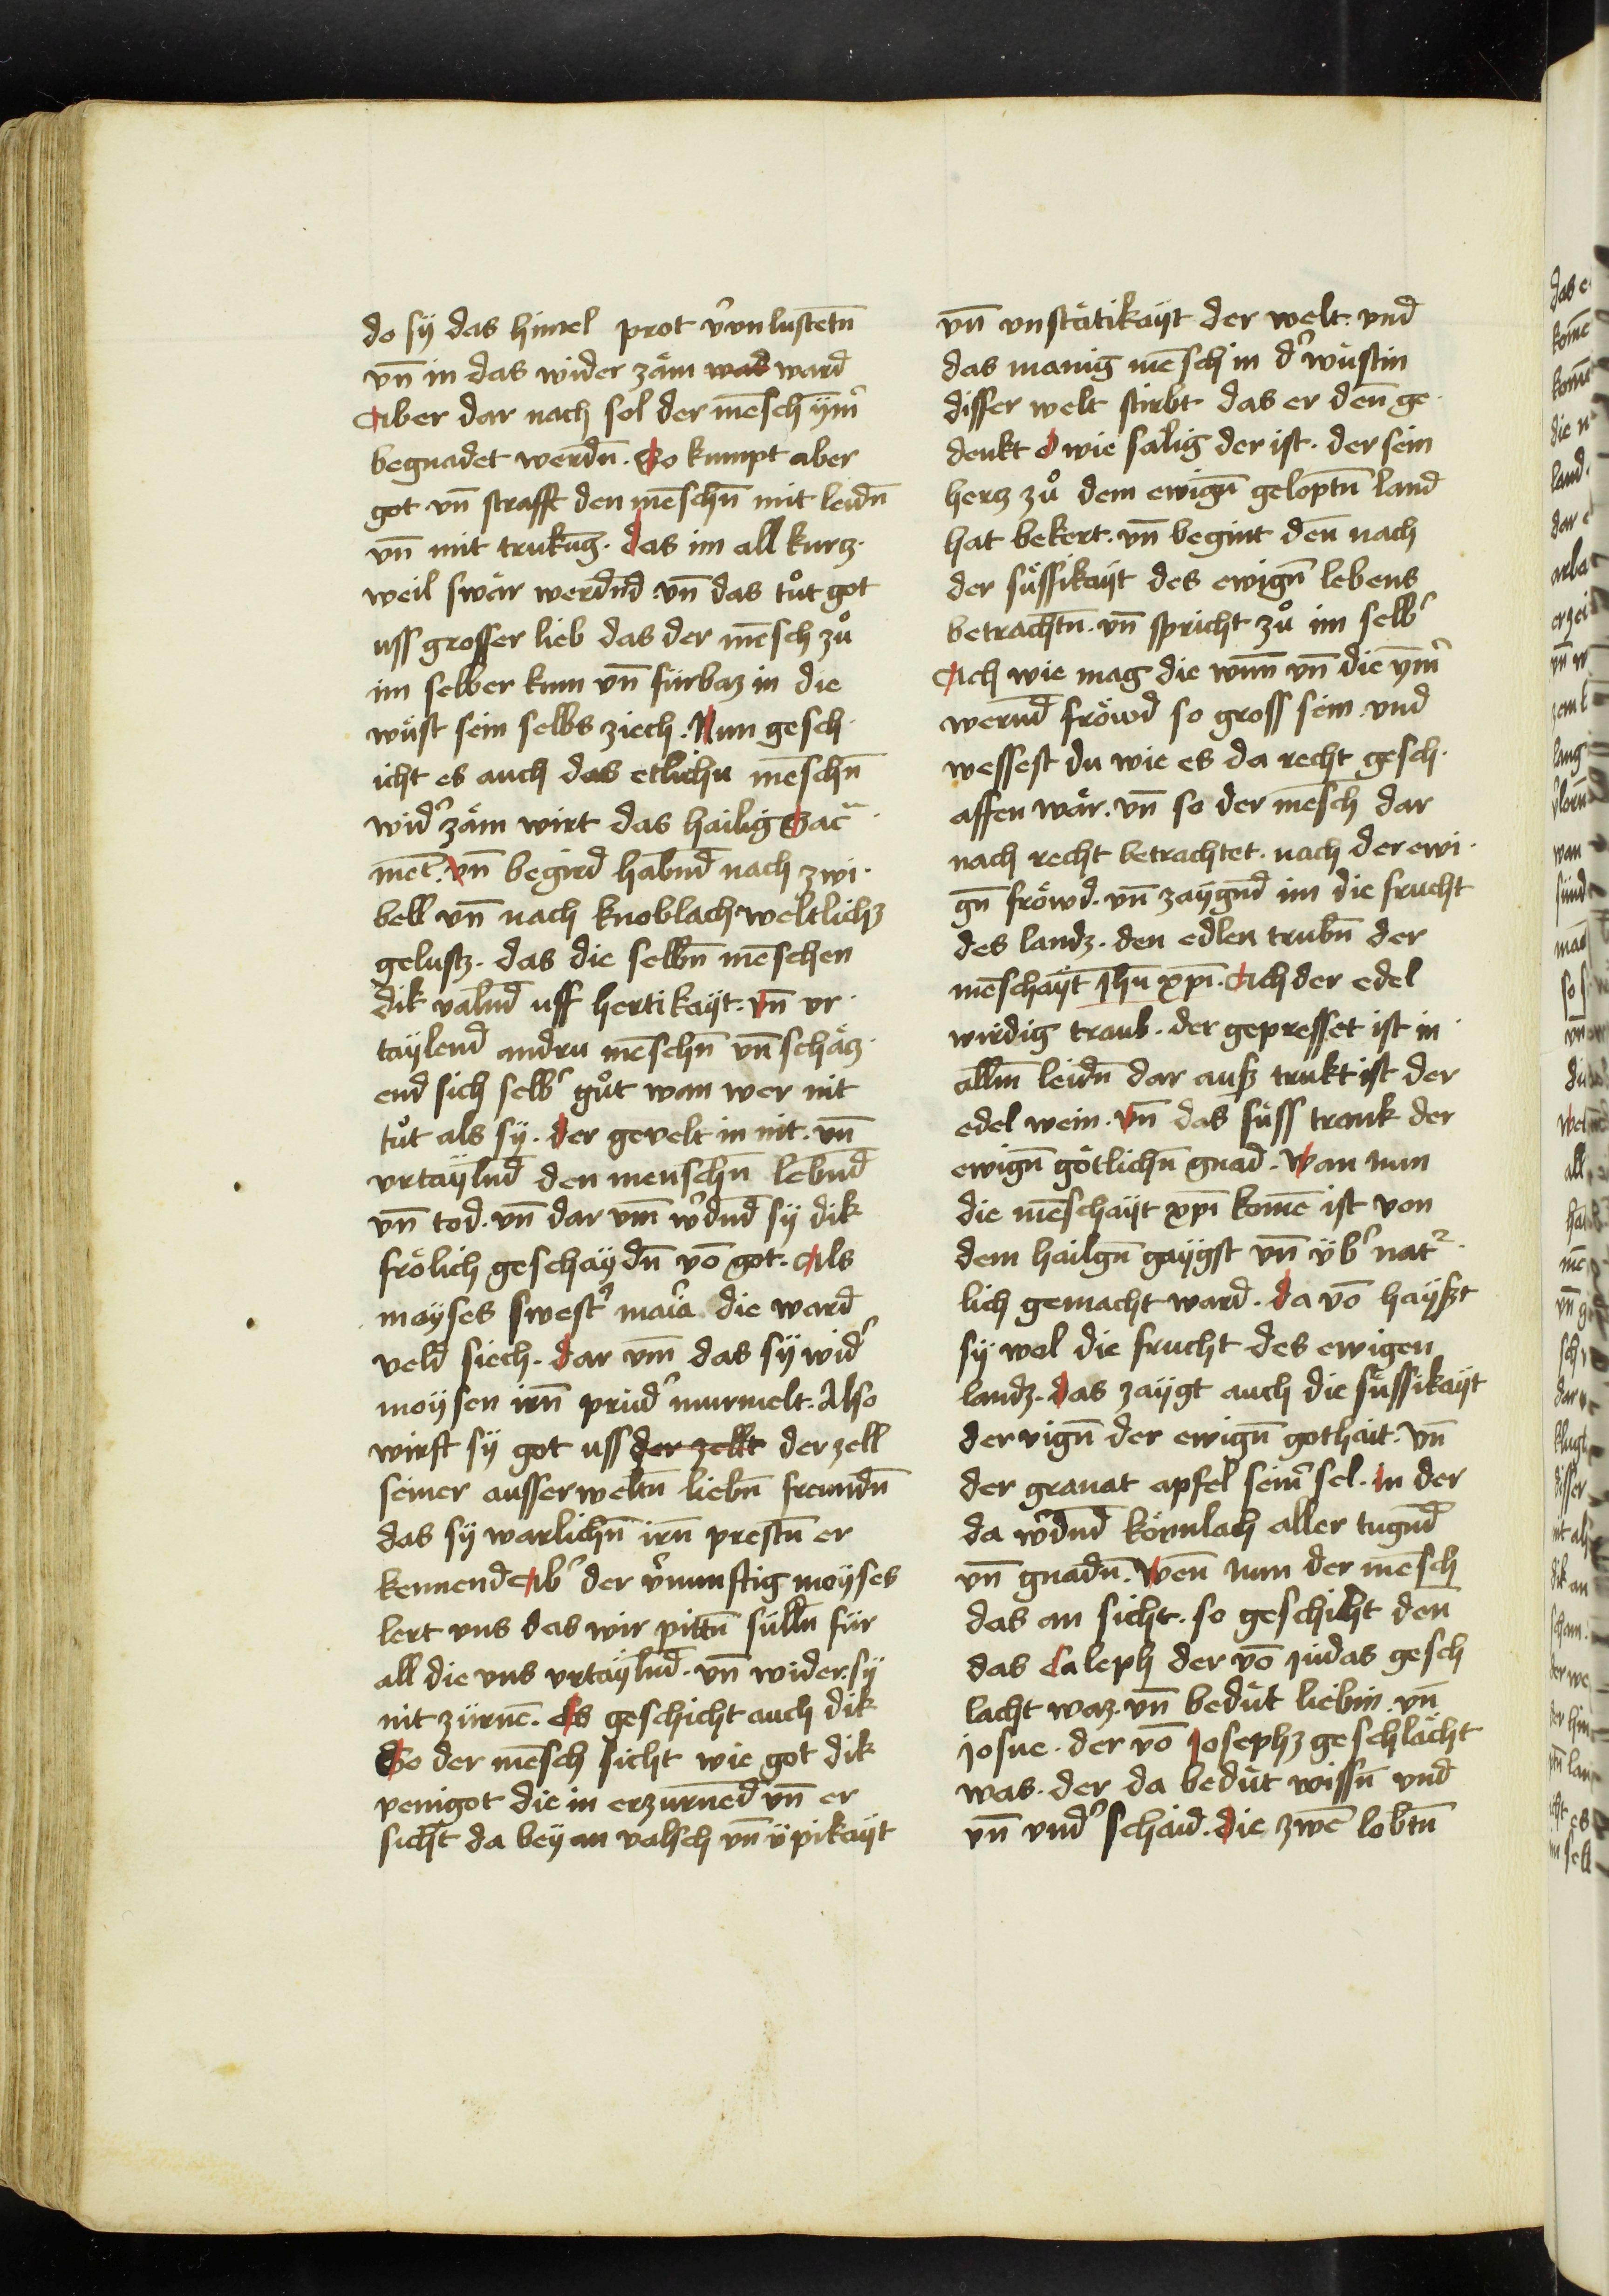 do sÿ das himel prot v̉vnlustetn̄
vn̄ in das wider zäm wad ward
Aber dar nach sol der mēsch ÿm̉
begnadet werdn̄. So kumpt aber
got vn̄ strafft den mēschn̄ mit leidn̄
vn̄ mit trukūg. das im all kurtz.
weil swär werdn̄d vn̄ das tůt got
uss grosser lieb das der mēsch zů
im selber kum vn̄ fürbaz in die
wüst sein selbs ziech. Nun gesch.
icht es auch das etlichn mēschn̄
wid̉ zäm wirt das hailig Sac̄
met̄. vn̄ begird habn̄d nach zwi.
bell vn̄ nach knoblach weltlichz
gelustz. das die selbn̄ mēschen
dik valn̄d uff hertikaÿt. vn̄ vr.
taÿlend andru mēschn̄ vn̄ schätz.
end sich selb̉ gůt wan wer nit
tůt als sÿ. der gevelt in nit. vn̄
vrtaÿln̄d den menschn̄ lebn̄d
vn̄ tod. vn̄ dar vm̄ w̉dn̄d sÿ dik
frölich geschaÿdn̄ vō got. Als
moÿses swest̉ maīa die ward
veld siech. dar vm̄ das sÿ wid̉
moÿsen irn̄ prud̉ murmelt. Also
wirft sÿ got uss der zellt der zell
seiner ausserweltn̄ liebn̄ freundn̄
das sÿ warlichn̄ irn̄ prestn̄ er
kennend Ab̉ der v̉nunftig moÿses
lert vns das wir pittn̄ sülln̄ für
all die vns vrtaÿln̄d. vn̄ wider sÿ
nit zürnē. Es geschicht auch dik
So der mēsch sicht wie got dik
penigot die in erzürnēd vn̄ er
sicht da beÿ an valsch vn̄ üpikaÿt
vn̄ vnstätikaÿt der welt. vnd
das manig mēsch in d̉ wüstin
disser welt stirbt das er den̄ ge.
denkt O wie sälig der ist. der sein
hertz zů dem ewign̄ geloptn̄ land
hat bekert. vn̄ begint den̄ nach
der süssikaÿt des ewign̄ lebens
betrachtn̄. vn̄ spricht zů im selb̉
Ach wie mag die wun̄ vn̄ die ÿm̉
wern̄d fröwd so gross sein. vnd
wessest du wie es da recht gesch.
affen wär. vn̄ so der mēsch dar
nach recht betrachtet. nach der ewi.
gn̄ fröwd. vn̄ zaÿgn̄d im die frucht
des landz. den edlen trubn̄ der
mēschaÿt Jhū xp̄i. Ach der edel
wirdig traub. der gepresset ist in
alln̄ leidn̄ dar ausz trukt ist der
edel wein. vn̄ das süss trank der
ewign̄ götlichn̄ gnad. Wan nun
die mēschaÿt xp̄i komē ist von
dem hailgn̄ gaÿgst vn̄ üb̉ nat²
lich gemacht ward. da vō haÿszt
sÿ wol die frucht des ewigen
landz. das zaÿgt auch die süssikaÿt
der vign̄ der ewign̄ gothait. vn̄
der granat apfel sein̉ sel. in der
da w̉dn̄d körnlach aller tugn̄d
vn̄ gnadn̄. Wen̄ nun der mēsch
das an sicht. so geschicht den̄
das Caleph der vō Judas gesch
lächt waz. vn̄ bedüt liebin. vn̄
josue. der vō Josephz geschlächt
was. der da bedüt wissn̄ vnd
vn̄ vnd̉ schaid. die zwē lobtn̄